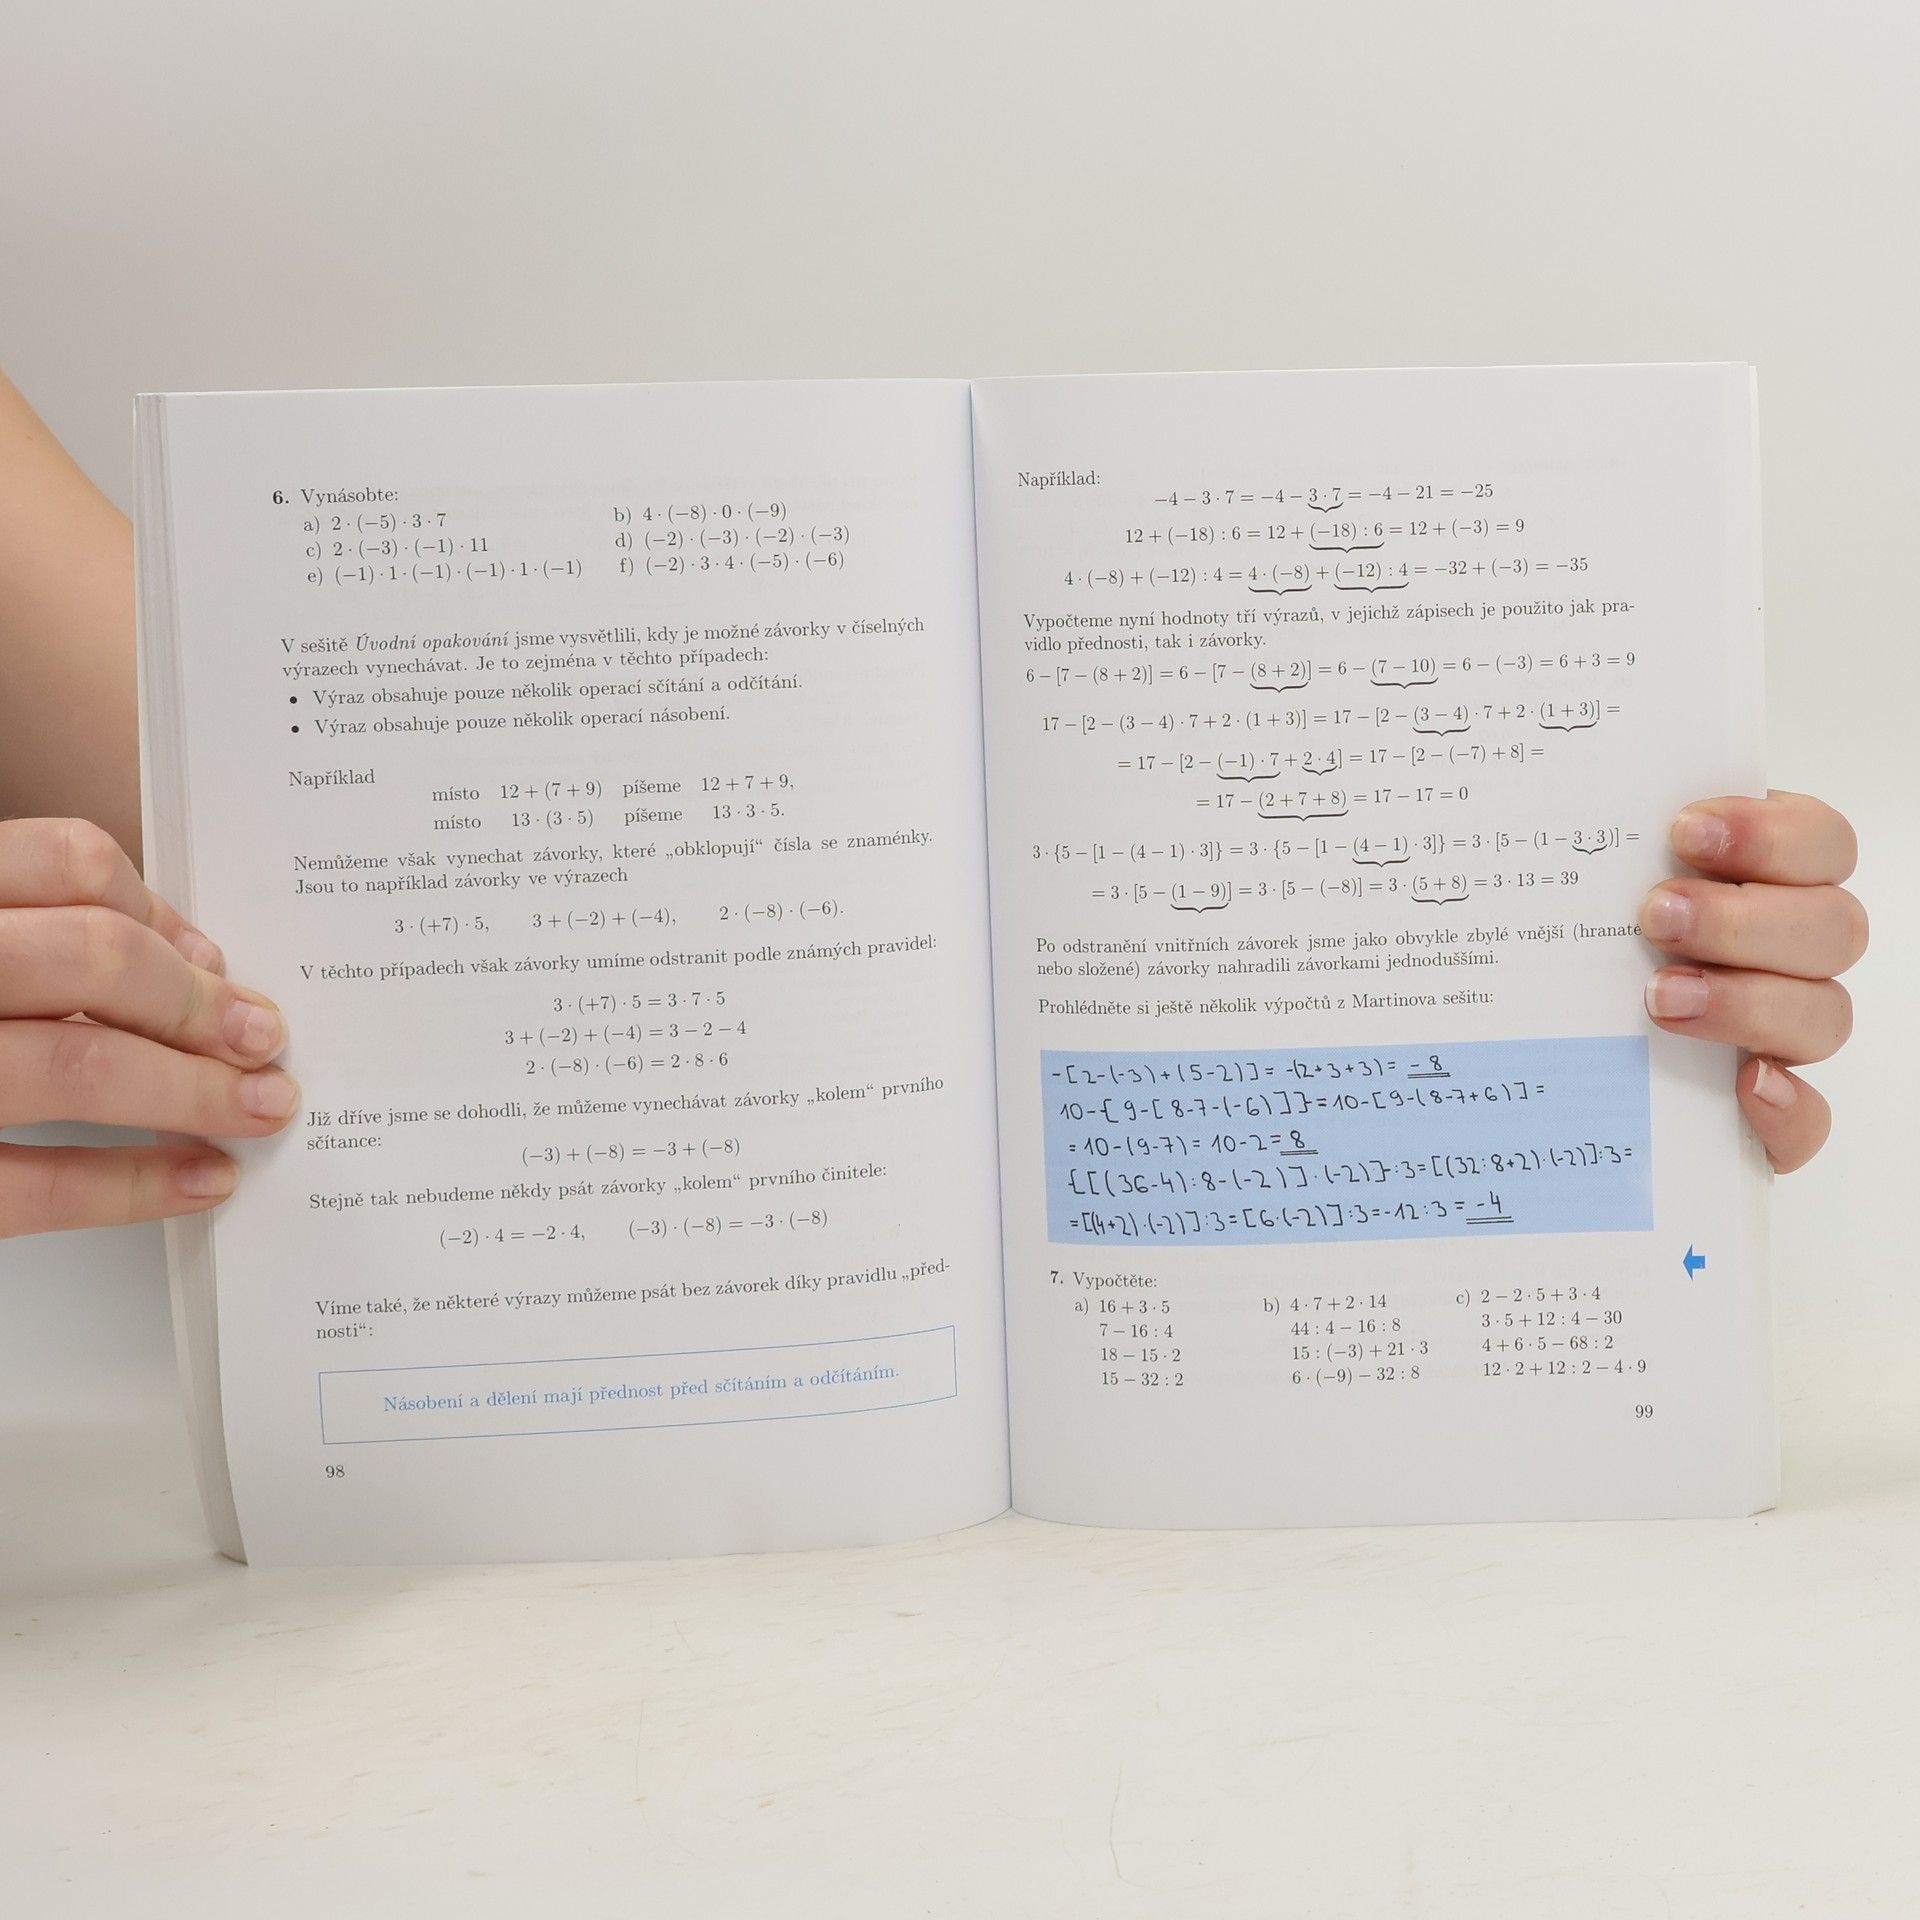 6. Vynásobte:
a) 2 · (−5) · 3 · 7 b) 4 · (−8) · 0 · (−9)
c) 2 · (−3) · (−1) · 11 d) (−2) · (−3) · (−2) · (−3)
e) (−1) · 1 · (−1) · (−1) · 1 · (−1) f) (−2) · 3 · 4 · (−5) · (−6)
V sešitě Úvodní opakování jsme vysvětlili, kdy je možné závorky v číselných
výrazech vynechávat. Je to zejména v těchto případech:
• Výraz obsahuje pouze několik operací sčítání a odčítání.
• Výraz obsahuje pouze několik operací násobení.
Například
místo 12 + (7 + 9) píšeme 12 + 7 + 9,
místo 13 · (3 · 5) píšeme 13 · 3 · 5.
Nemůžeme však vynechat závorky, které „obklopují“ čísla se znaménky.
Jsou to například závorky ve výrazech
3 · (+7) · 5, 3 + (−2) + (−4), 2 · (−8) · (−6).
V těchto případech však závorky umíme odstranit podle známých pravidel:
3 · (+7) · 5 = 3 · 7 · 5
3 + (−2) + (−4) = 3 − 2 − 4
2 · (−8) · (−6) = 2 · 8 · 6
Již dříve jsme se dohodli, že můžeme vynechávat závorky „kolem“ prvního
sčítance:
(−3) + (−8) = −3 + (−8)
Stejně tak nebudeme někdy psát závorky „kolem“ prvního činitele:
(−2) · 4 = −2 · 4, (−3) · (−8) = −3 · (−8)
Víme také, že některé výrazy můžeme psát bez závorek díky pravidlu „před-
nosti“:
Násobení a dělení mají přednost před sčítáním a odčítáním.
98
Například:
−4 − 3 · 7 = −4 − 3 · 7 = −4 − 21 = −25
12 + (−18) : 6 = 12 + (−18) : 6 = 12 + (−3) = 9
4 · (−8) + (−12) : 4 = 4 · (−8) + (−12) : 4 = −32 + (−3) = −35
Vypočteme nyní hodnoty tří výrazů, v jejichž zápisech je použito jak pra-
vidlo přednosti, tak i závorky.
6 − [7 − (8 + 2)] = 6 − [7 − (8 + 2)] = 6 − (7 − 10) = 6 − (−3) = 6 + 3 = 9
17 − [2 − (3 − 4) · 7 + 2 · (1 + 3)] = 17 − [2 − (3 − 4) · 7 + 2 · (1 + 3)] =
= 17 − [2 − (−1) · 7 + 2 · 4] = 17 − [2 − (−7) + 8] =
= 17 − (2 + 7 + 8) = 17 − 17 = 0
3 · {5 − [1 − (4 − 1) · 3]} = 3 · {5 − [1 − (4 − 1) · 3]} = 3 · [5 − (1 − 3 · 3)] =
= 3 · [5 − (1 − 9)] = 3 · [5 − (−8)] = 3 · (5 + 8) = 3 · 13 = 39
Po odstranění vnitřních závorek jsme jako obvykle zbylé vnější (hranaté
nebo složené) závorky nahradili závorkami jednoduššími.
Prohlédněte si ještě několik výpočtů z Martinova sešitu:
-[2-(-3)+(5-2)]= -(2+3+3)= -8
10-{9-[8-7-(-6)]}=10-[9-(8-7+6)]=
=10-(9-7)=10-2=8
{[(36-4):8-(-2)]·(-2)}:3=[(32:8+2)·(-2)]:3=
=[(4+2)·(-2)]:3=[6·(-2)]:3=-12:3=-4
7. Vypočtěte:
a) 16 + 3 · 5 b) 4 · 7 + 2 · 14 c) 2 − 2 · 5 + 3 · 4
7 − 16 : 4 44 : 4 − 16 : 8 3 · 5 + 12 : 4 − 30
18 − 15 · 2 15 : (−3) + 21 · 3 4 + 6 · 5 − 68 : 2
15 − 32 : 2 6 · (−9) − 32 : 8 12 · 2 + 12 : 2 − 4 · 9
99